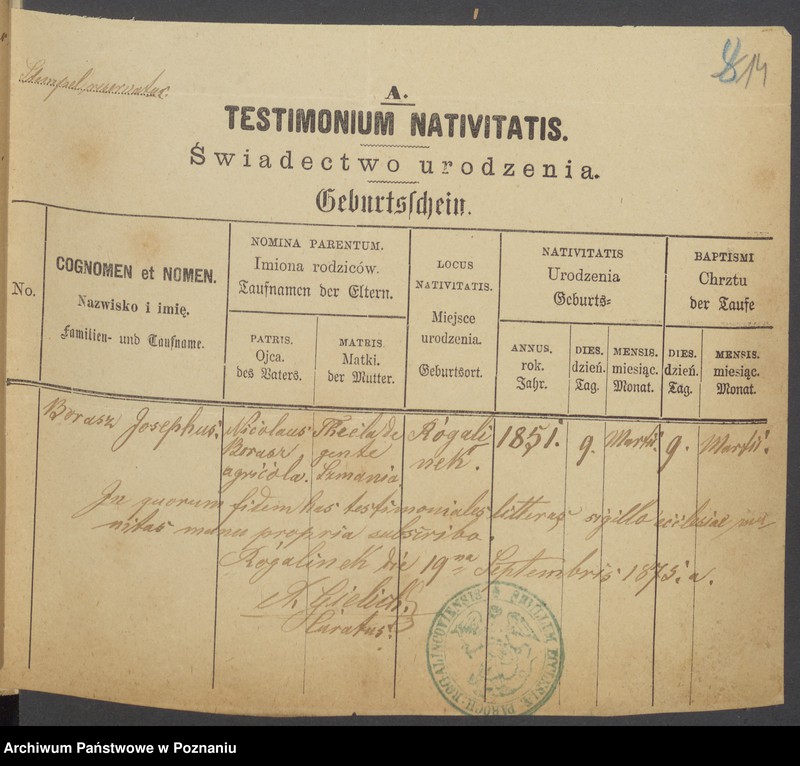 8 14
A.
TESTIMONIUM NATIVITATIS.
Świadectwo urodzenia.
Geburtsschein.
No.
COGNOMEN et NOMEN.
Nazwisko i imię.
Familien- und Taufname.
NOMINA PARENTUM.
Imiona rodziców.
Taufnamen der Eltern.
PATRIS.
Ojca.
des Vaters.
MATRIS
Matki.
der Mutter.
LOCUS
NATIVITATIS.
Miejsce
urodzenia.
Geburtsort.
NATIVITATIS
Urodzenia
Geburts=
ANNUS.
rok.
Jahr.
DIES.
dzień.
Tag.
MENSIS.
miesiąc.
Monat.
BAPTISMI
Chrztu
der Taufe
DIES.
dzień.
Tag.
MENSIS.
miesiąc.
Monat.
Borasz Josephus.
Nicolaus
Borasz
agricola.
Thecla de
gente
Szmania
Rogali
nek.
1851.
9.
Martii.
9.
Martii.
In quorum fidem has testimoniales litteras sigillo ecclesiae mu-
nitas manu propria subscribo.
Rogalinek die 19na Septembris 1875. a.
Curatus.
Archiwum Państwowe w Poznaniu